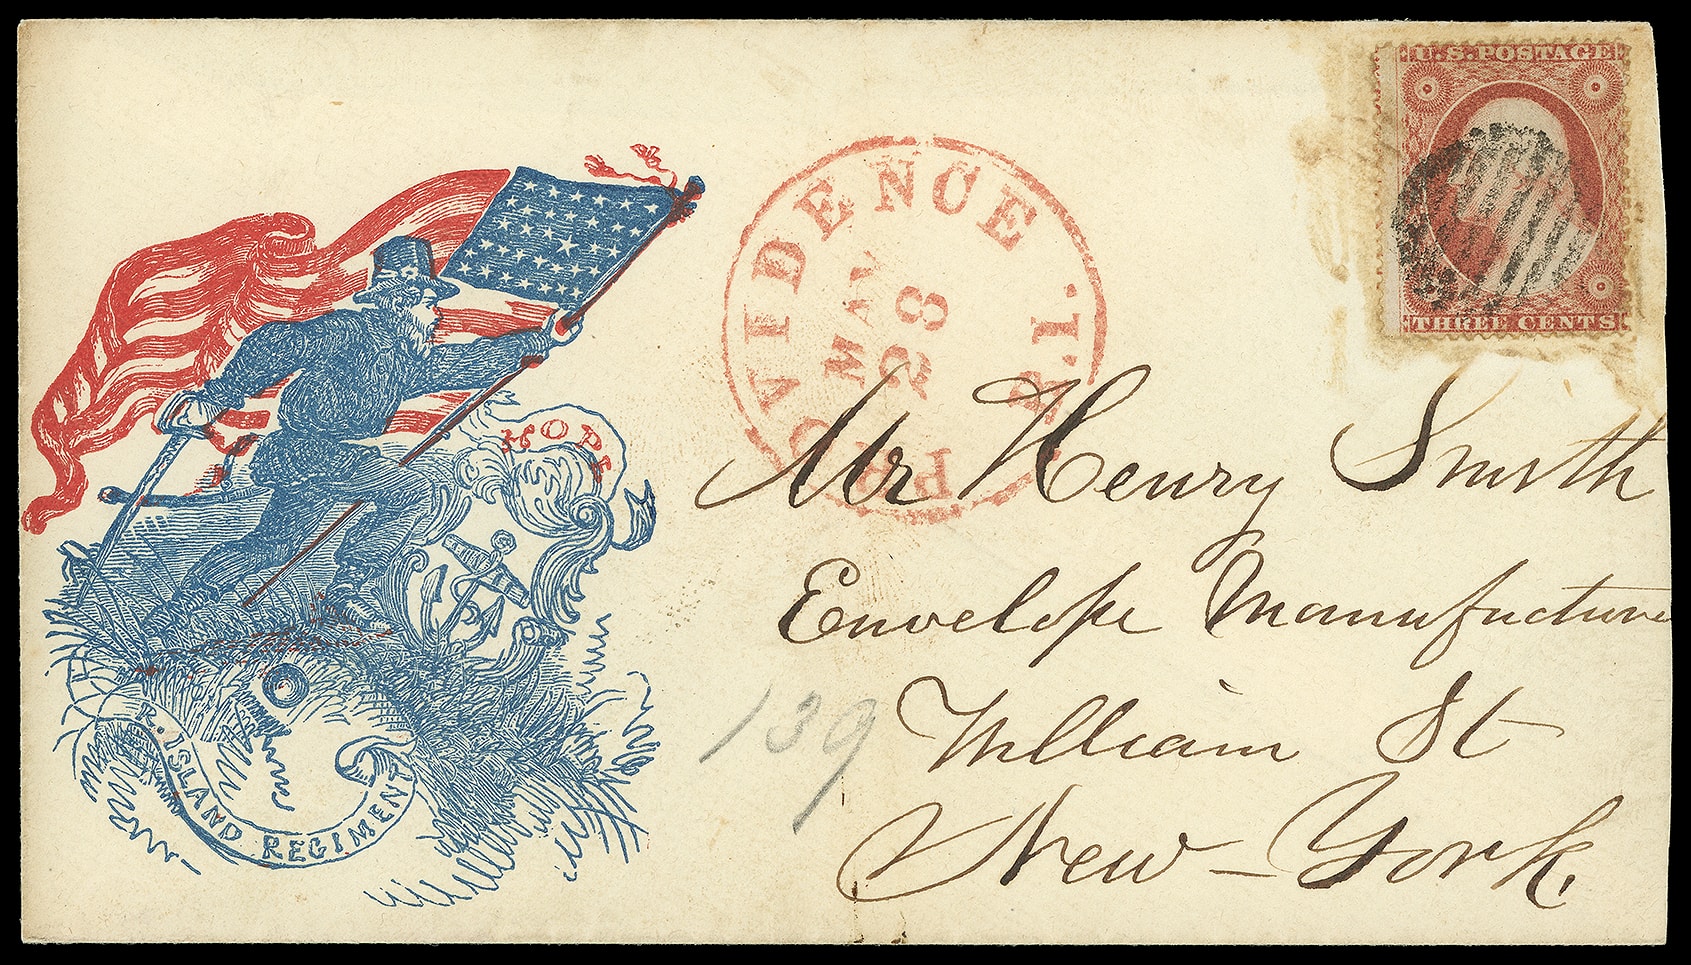 U.S. POSTAGE
THREE CENTS
PROVIDENCE R.I.
MAY
28
HOPE
R. ISLAND REGIMENT
Mr Henry Smith
Envelope Manufacture
William St
New-York.
139